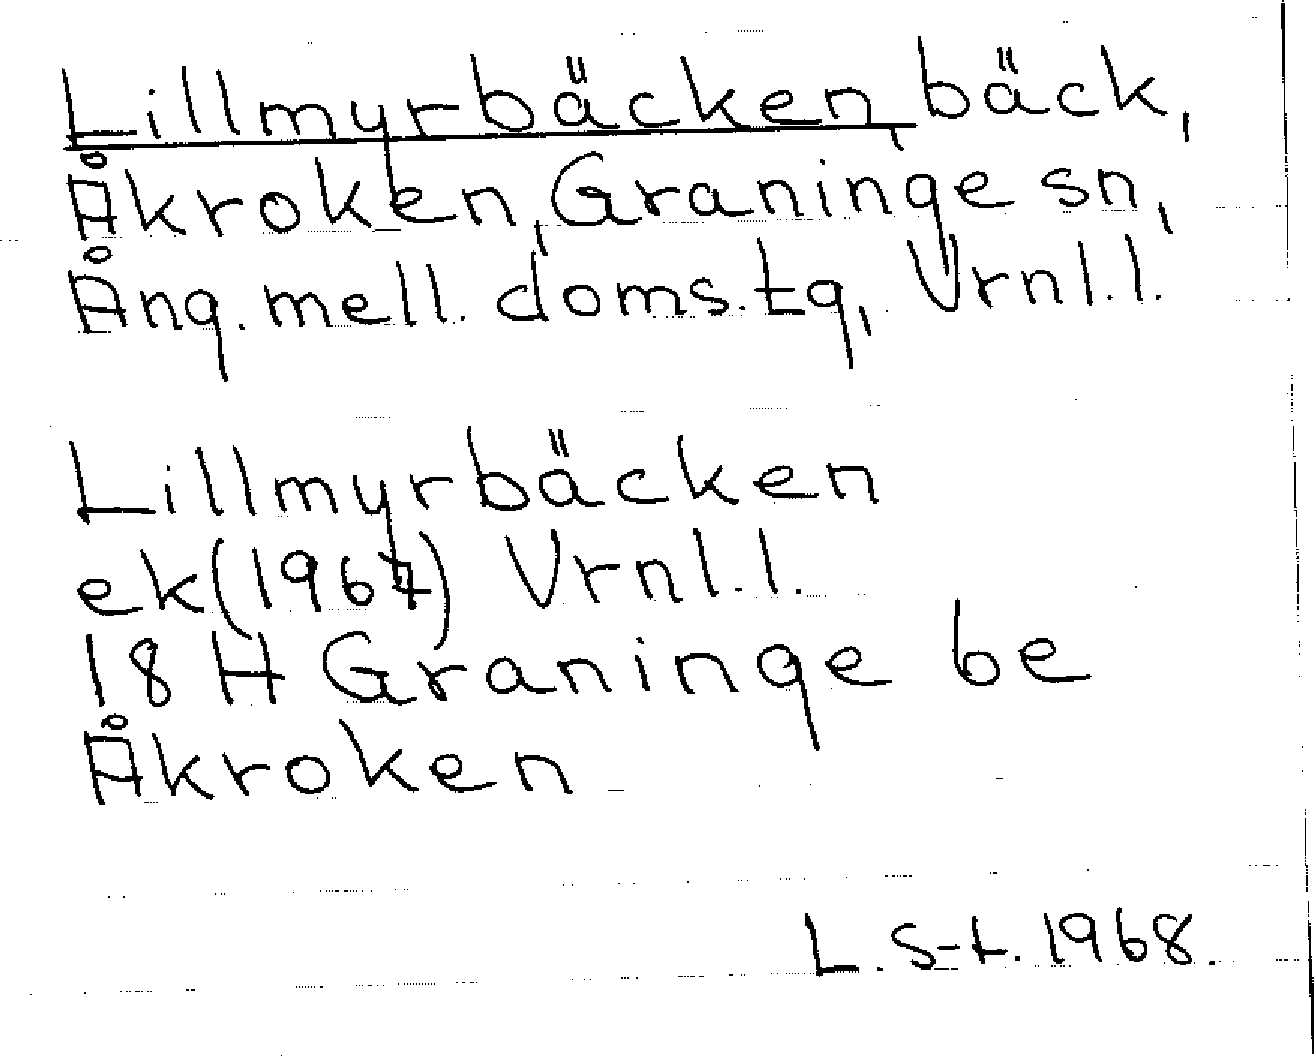 Lillmyrbäcken, bäck,
Åkroken, Graninge sn,
Ång. mell. doms.tg, Vrnl.l.
Lillmyrbäcken
ek(1967) Vrnl.l.
18 H Graninge be
Åkroken
L. S-t. 1968.